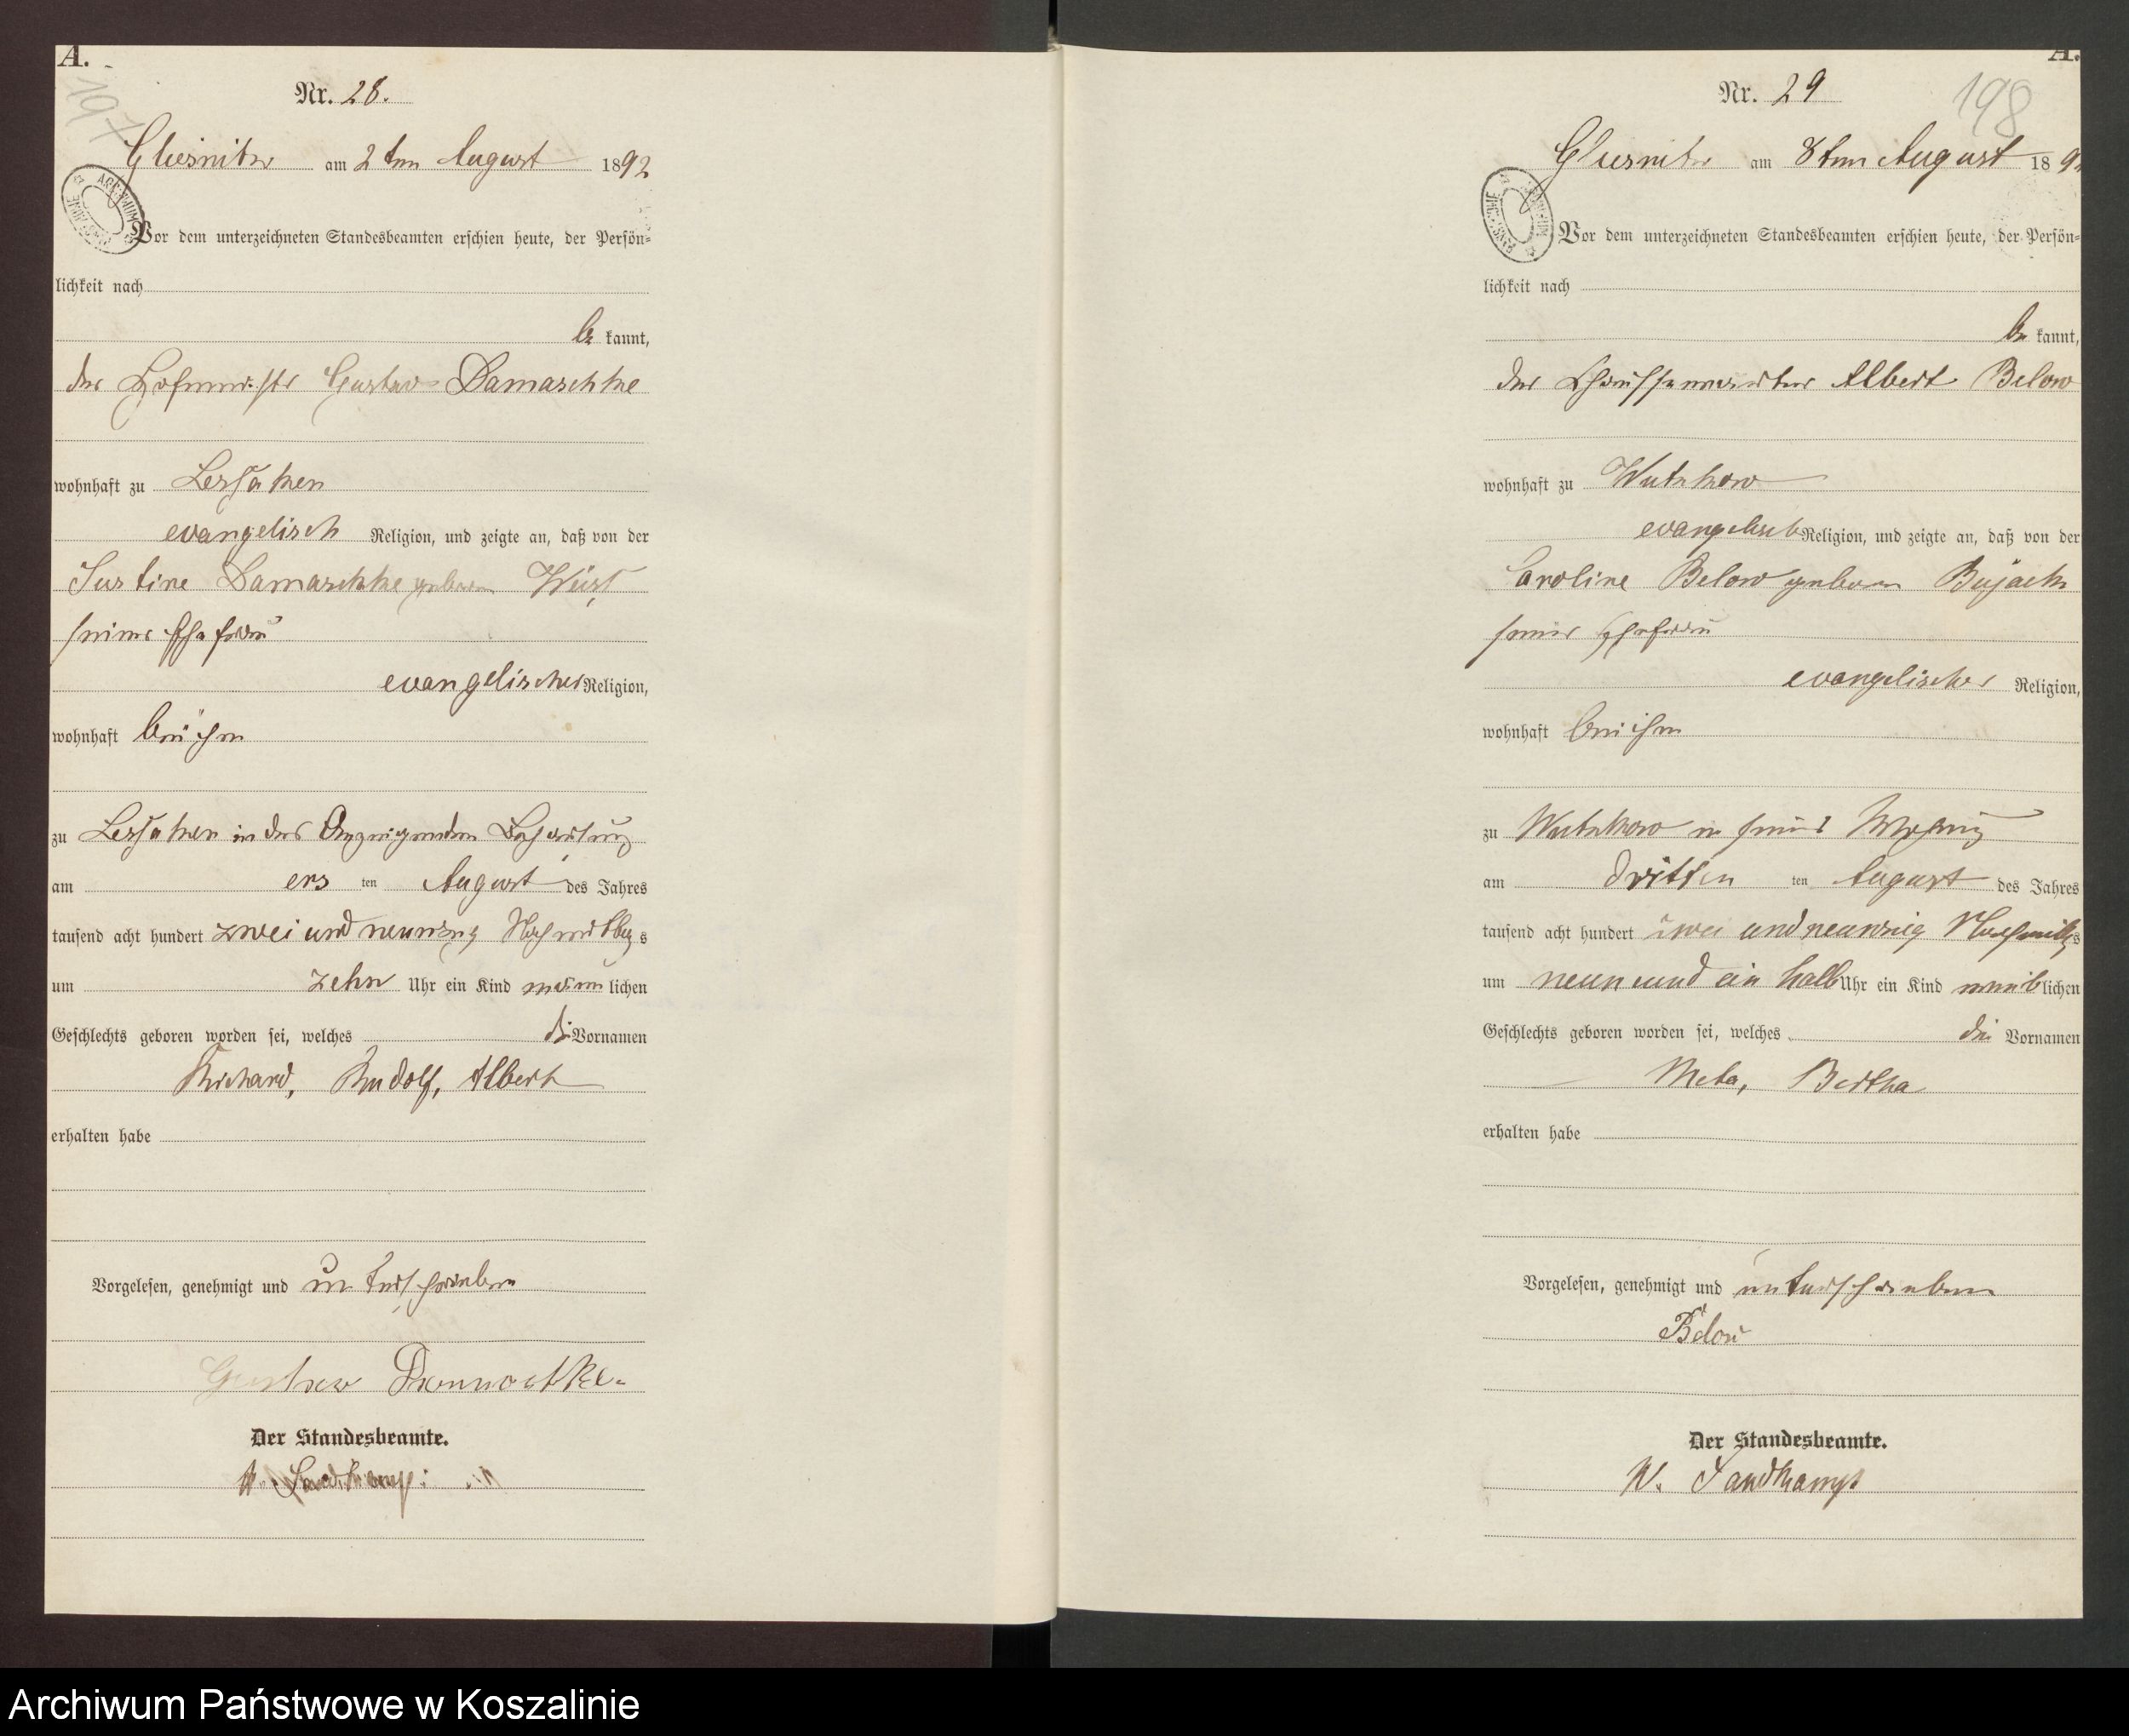 A.
197
Nr. 28.
Glusnitz am 2ten August 1892
Vor dem unterzeichneten Standesbeamten erschien heute, der Persön=
lichkeit nach
be kannt,
der Hofmeister Gustav Damaschke
wohnhaft zu Lessaken
evangelisch Religion, und zeigte an, daß von der
Justine Damaschke geboren
seiner Ehefrau
evangelischer Religion,
wohnhaft bei ihm
zu Lessaken in des Anzeigenden Behausung
am ers ten August des Jahres
tausend acht hundert zwei und neunzig Nachmittags
um zehn Uhr ein Kind männlichen
Geschlechts geboren worden sei, welches die Vornamen
Richard, Rudolf, Albert
erhalten habe
Vorgelesen, genehmigt und unterschrieben
Gustav Damaschke
Der Standesbeamte.
W. Sandkamp
A.
198
Nr. 29
Glusnitz am 8ten August 1892
Vor dem unterzeichneten Standesbeamten erschien heute, der Persön=
lichkeit nach
be kannt,
der Chausseewärter Albert Below
wohnhaft zu Wutzkow
evangelisch Religion, und zeigte an, daß von der
Caroline Below geboren Bujack
seiner Ehefrau
evangelischer Religion,
wohnhaft bei ihm
zu Wutzkow in seiner Wohnung
am dritten ten August des Jahres
tausend acht hundert zwei und neunzig Nachmittags
um neun und ein halb Uhr ein Kind weiblichen
Geschlechts geboren worden sei, welches die Vornamen
Meta, Bertha
erhalten habe
Vorgelesen, genehmigt und unterschrieben
Below
Der Standesbeamte.
W. Sandkamp
Archiwum Państwowe w Koszalinie